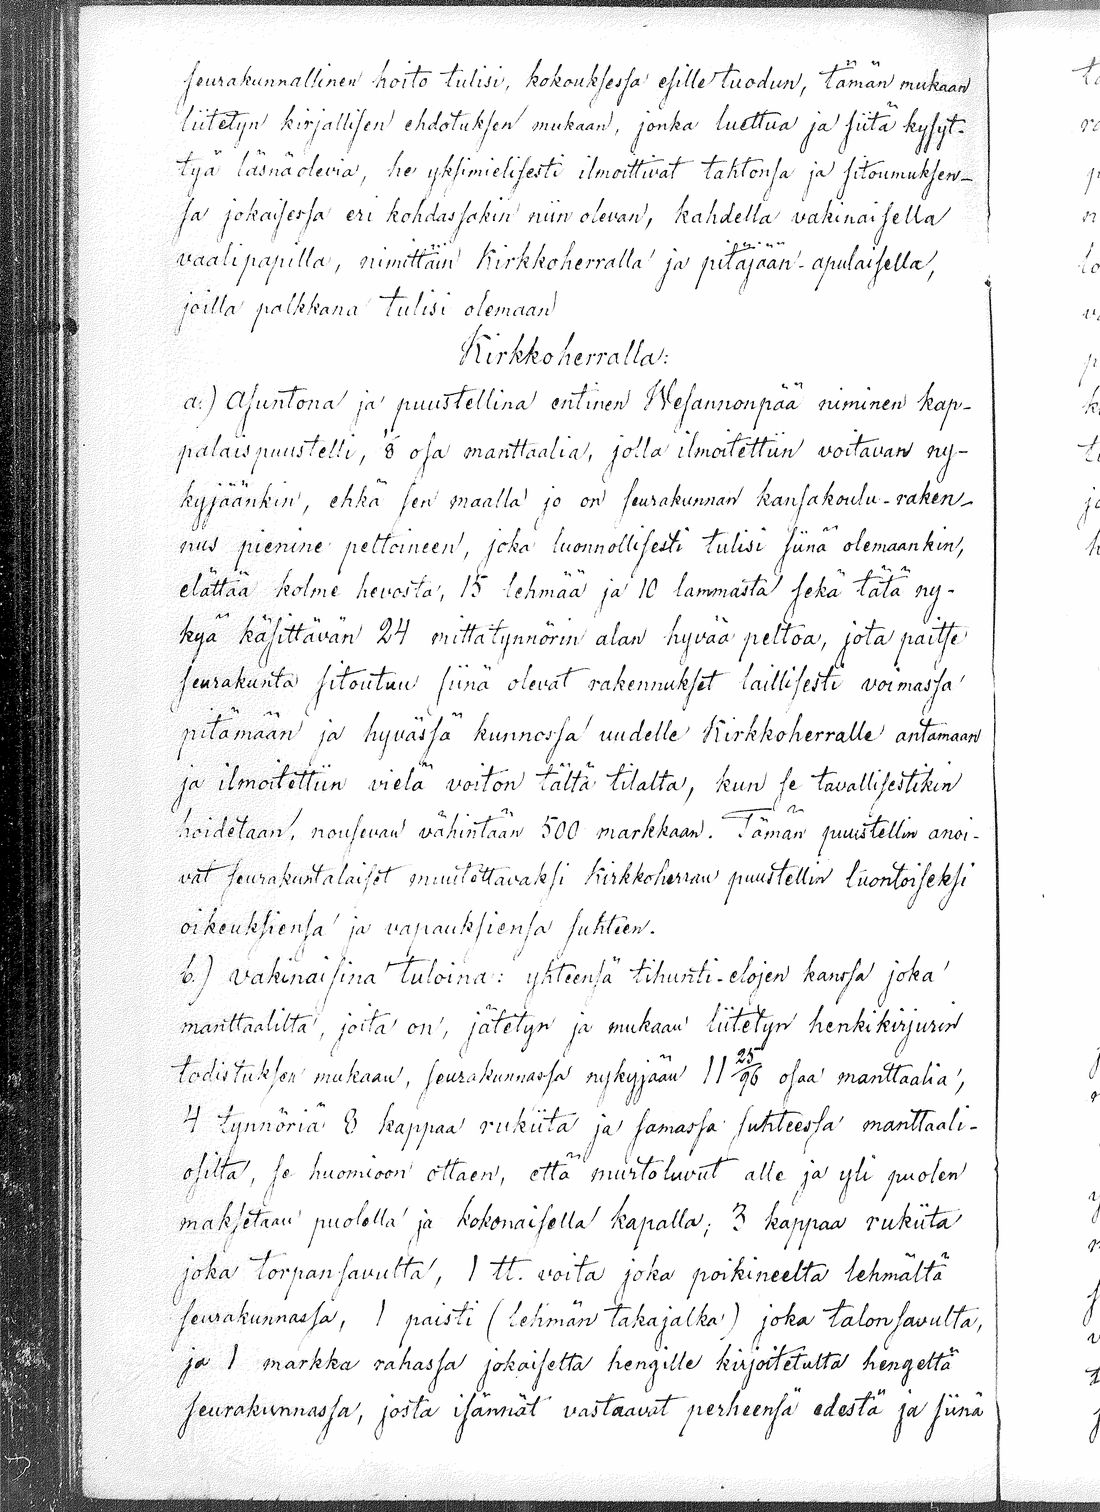 seurakunnallinen hoito tulisi, kokouksessa esille tuodun, tämän mukaan
liitetyn kirjallisen ehdotuksen mukaan, jonka luettua ja siitä kysyt-
tyä läsnäolevia, he yksimielisesti ilmoittivat tahtonsa ja sitoumuksen-
sa jokaisessa eri kohdassakin niin olevan, kahdella vakinaisella
vaalipapilla, nimittäin Kirkkoherralla ja pitäjään-apulaisella,
joilla palkkana tulisi olemaan
Kirkkoherralla:
a.) Asuntona ja puustellina entinen Wesannonpää niminen kap-
palaispuustelli, 1/8 osa manttaalia, jolla ilmoitettiin voitavan ny-
kyjäänkin, ehkä sen maalla jo on seurakunnan kansakoulu-raken-
nus pienine peltoineen, joka luonnollisesti tulisi siinä olemaankin,
elättää kolme hevosta, 15 lehmää ja 10 lammasta sekä tätä ny-
kyä käsittävän 24 mittatynnörin alan hyvää peltoa, jota paitse
seurakunta sitoutuu siinä olevat rakennukset laillisesti voimassa
pitämään ja hyvässä kunnossa uudelle Kirkkoherralle antamaan
ja ilmoitettiin vielä voiton tältä tilalta, kun se tavallisestikin
hoidetaan, nousevan vähintään 500 markkaan. Tämän puustellin anoi-
vat seurakuntalaiset muutettavaksi Kirkkoherran puustellin luontoiseksi
oikeuksiensa ja vapauksiensa suhteen.
b.) vakinaisina tuloina: yhteensä tihunti-elojen kanssa joka
manttaalilta, joita on, jätetyn ja mukaan liitetyn henkikirjurin
todistuksen mukaan, seurakunnassa nykyjään 11 25/96 osaa manttaalia,
4 tynnöriä 8 kappaa rukiita ja samassa suhteessa manttaali-
osilta, se huomioon ottaen, että murtoluvut alle ja yli puolen
maksetaan puolella ja kokonaisella kapalla; 3 kappaa rukiita
joka torpansavulta, 1 tt. voita joka poikineelta lehmältä
seurakunnassa, 1 paisti (lehmän takajalka) joka talonsavulta,
ja 1 markka rahassa jokaiselta hengille kirjoitetulta hengeltä
seurakunnassa, josta isännät vastaavat perheensä edestä ja siinä